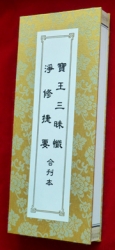 寶王三昧懺
淨修捷要
合刊本